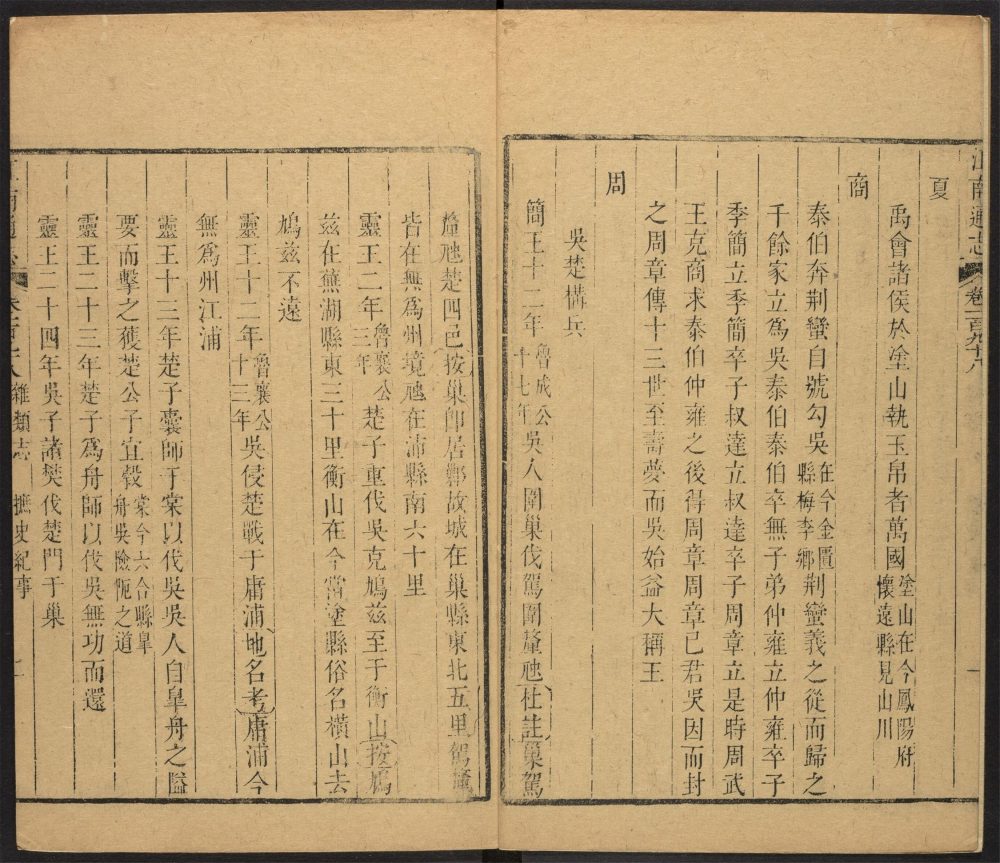 江南通志 卷一百九十八 一
夏
禹會諸侯於塗山執玉帛者萬國塗山在今鳳陽府懷遠縣見山川
商
泰伯奔荆蠻自號勾吳在今金匱縣梅李鄉荆蠻義之從而歸之
千餘家立為吳泰伯泰伯卒無子弟仲雍立仲雍卒子
季簡立季簡卒子叔達立叔達卒子周章立是時周武
王克商求泰伯仲雍之後得周章周章已君吳因而封
之周章傳十三世至壽夢而吳始益大稱王
周
吳楚構兵
簡王十二年魯成公十七年吳人圍巢伐駕圍釐虺杜註巢駕
釐虺楚四邑按巢卽居鄛故城在巢縣東北五里駕釐
皆在無為州境虺在沛縣南六十里
靈王二年魯襄公三年楚子重伐吳克鳩茲至于衡山按鳩
兹在蕪湖縣東三十里衡山在今當塗縣俗名橫山去
鳩兹不遠
靈王十二年魯襄公十三年吳侵楚戰于庸浦地名考庸浦今
無為州江浦
靈王十三年楚子囊師于棠以伐吳吳人自皐舟之隘
要而擊之獲楚公子宜穀棠今六合縣皐舟吳險阨之道
靈王二十三年楚子爲舟師以伐吳無功而還
靈王二十四年吳子諸樊伐楚門于巢
雜類志 摭史紀事 一